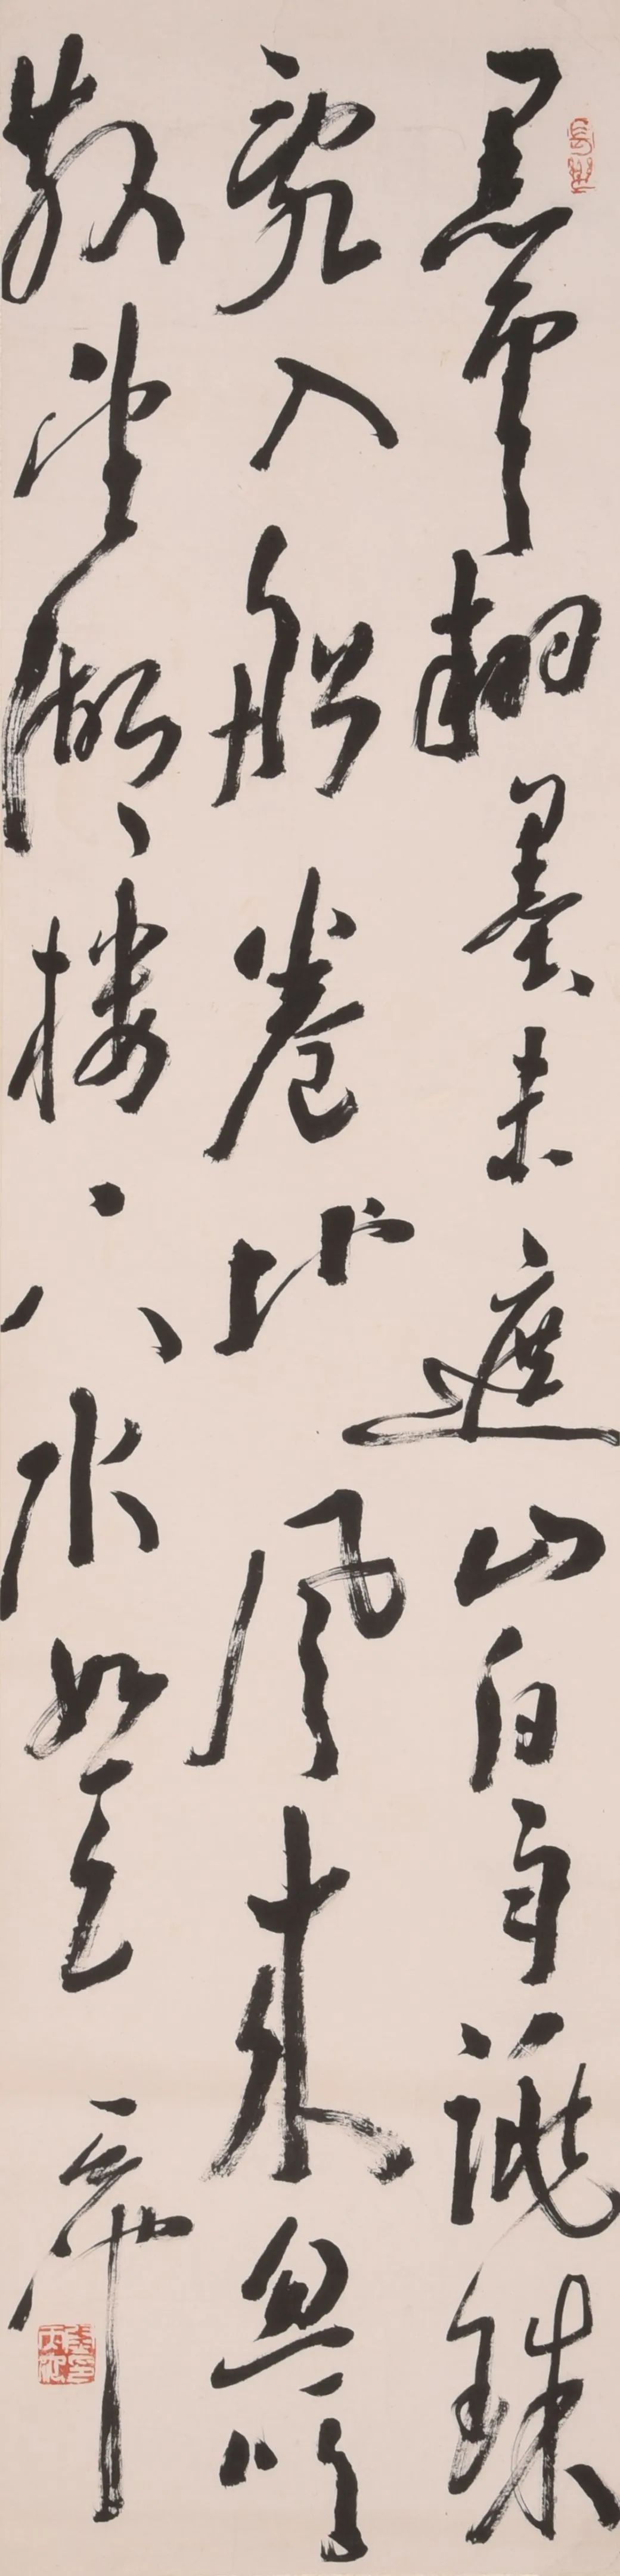 黑雲翻墨未遮山白雨跳珠
亂入船卷地風來忽吹
散望湖樓下水如天